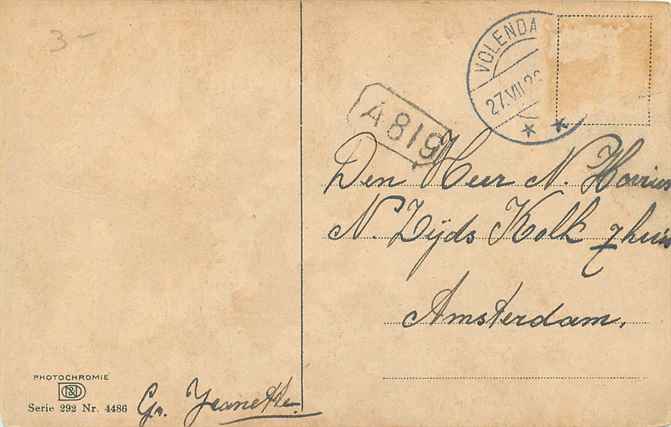 3-
VOLENDA
27.VII.22
A819
Den Heer N. Hovius
N. Zijds Kolk 7 huis
Amsterdam.
PHOTOCHROMIE
Serie 292 Nr. 4486
Gr. Jeanette.